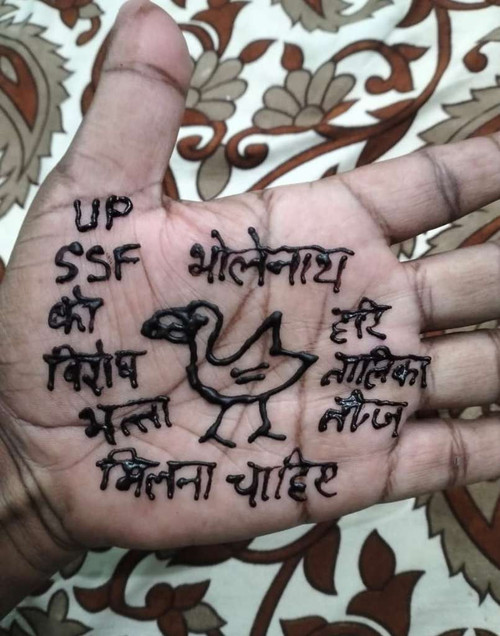 UP
SSF
को
विशेष
भत्ता
भोलेनाथ
हरि
तालिका
तीज
मिलना चाहिए